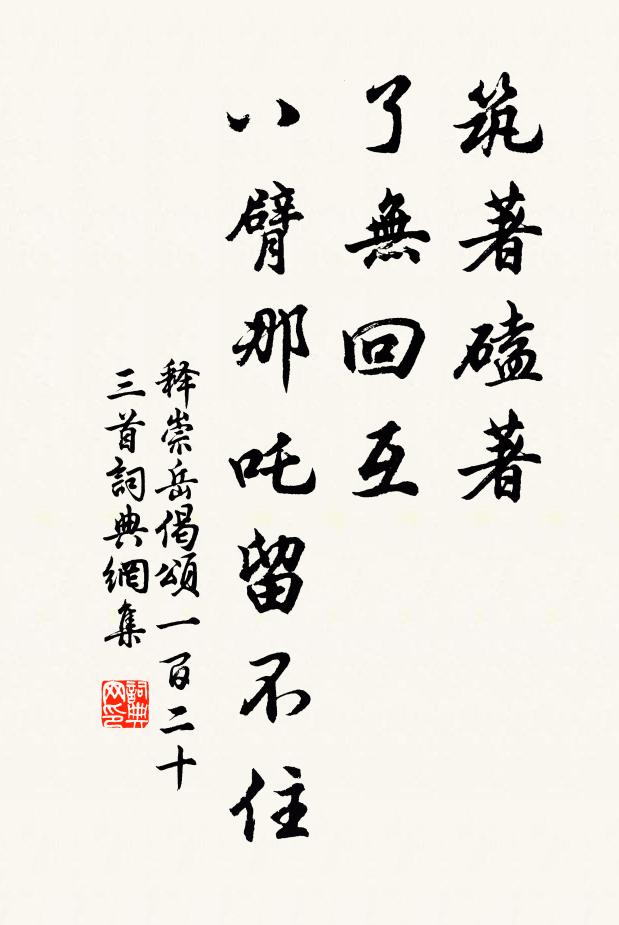 筑著磕著
了無回互
八臂那吒留不住
释崇岳偈頌一百二十
三首詞典網集
詞典网印